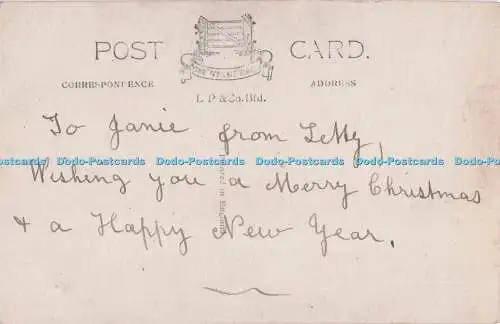 POST CARD.
CORRESPONDENCE ADDRESS
L. P. & Co. Bfd.
To Janie from Letty,
Dodo-Postcards Dodo-Postcards Dodo-Postcards Dodo-Postcards
Wishing you a Merry Christmas
& a Happy New Year.